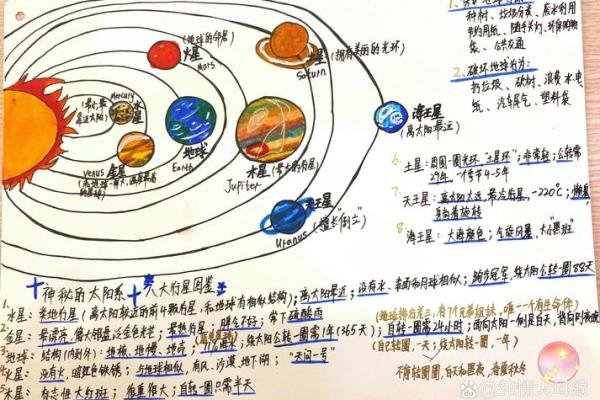 1、保护地球行为:
种树、垃圾分类、废水利用
节约用纸、随手关灯、环保购物
袋、公共交通
2、破坏地球行为:
扔垃圾、砍树、浪费水电
纸、汽车尾气、塑料袋
火星
(地球的邻居)
Mars
土星(拥有美丽的光环)
Saturn
Mercury
水星
(最小,最
靠近太阳)
Venus 金星
地球
Earth
木星(最大的行星)
Jupiter
海王星
(离太阳最远)
天王星
(擅长"倒立")
Uranus
6、土星:周围一圈光环"土星环";非常轻;公转需
29年,一个季节4-5年
7、天王星:离太阳太远,最冷行星,-220℃;懒散,
躺着旋转
8、海王星:大海颜色;气旋风暴,大"黑斑"
神秘的太阳系 八大行星图鉴
1、水星:类地行星(离太阳最近的前4颗行星,和地球有相似结构);离太阳最近;没有水、表面和月球相似;跑步冠军,绕太阳公转一圈88天
2、金星:最漂亮,像大钢盔泛金色光芒;最热行星;常下硫酸雨
地球:结构(内到外):地核、地幔、地壳;绕太阳公转一圈需1年(365天);自转一圈需24小时;面向太阳一侧是白天,背向则夜晚
(地球排行老三,有7个兄弟姐妹,唯一一个有生命体)
(自己转圈,一天;绕太阳转一圈,一年)
火星:没有水,暗红色铁锈;与地球相似,有风、沙漠、地下湖;"天问一号"
不停转圈圈,白天和黑夜,春夏秋冬
5、木星:标志性大红斑;很重很大;自转一圈只需半天